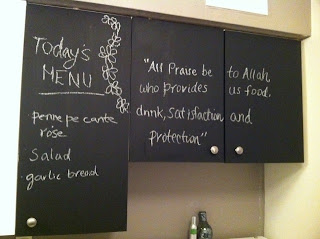 Today's
MENU
penne pe cante
rose
Salad
garlic bread
"All Praise be to Allah,
who provides us food,
drink, satisfaction and
protection"